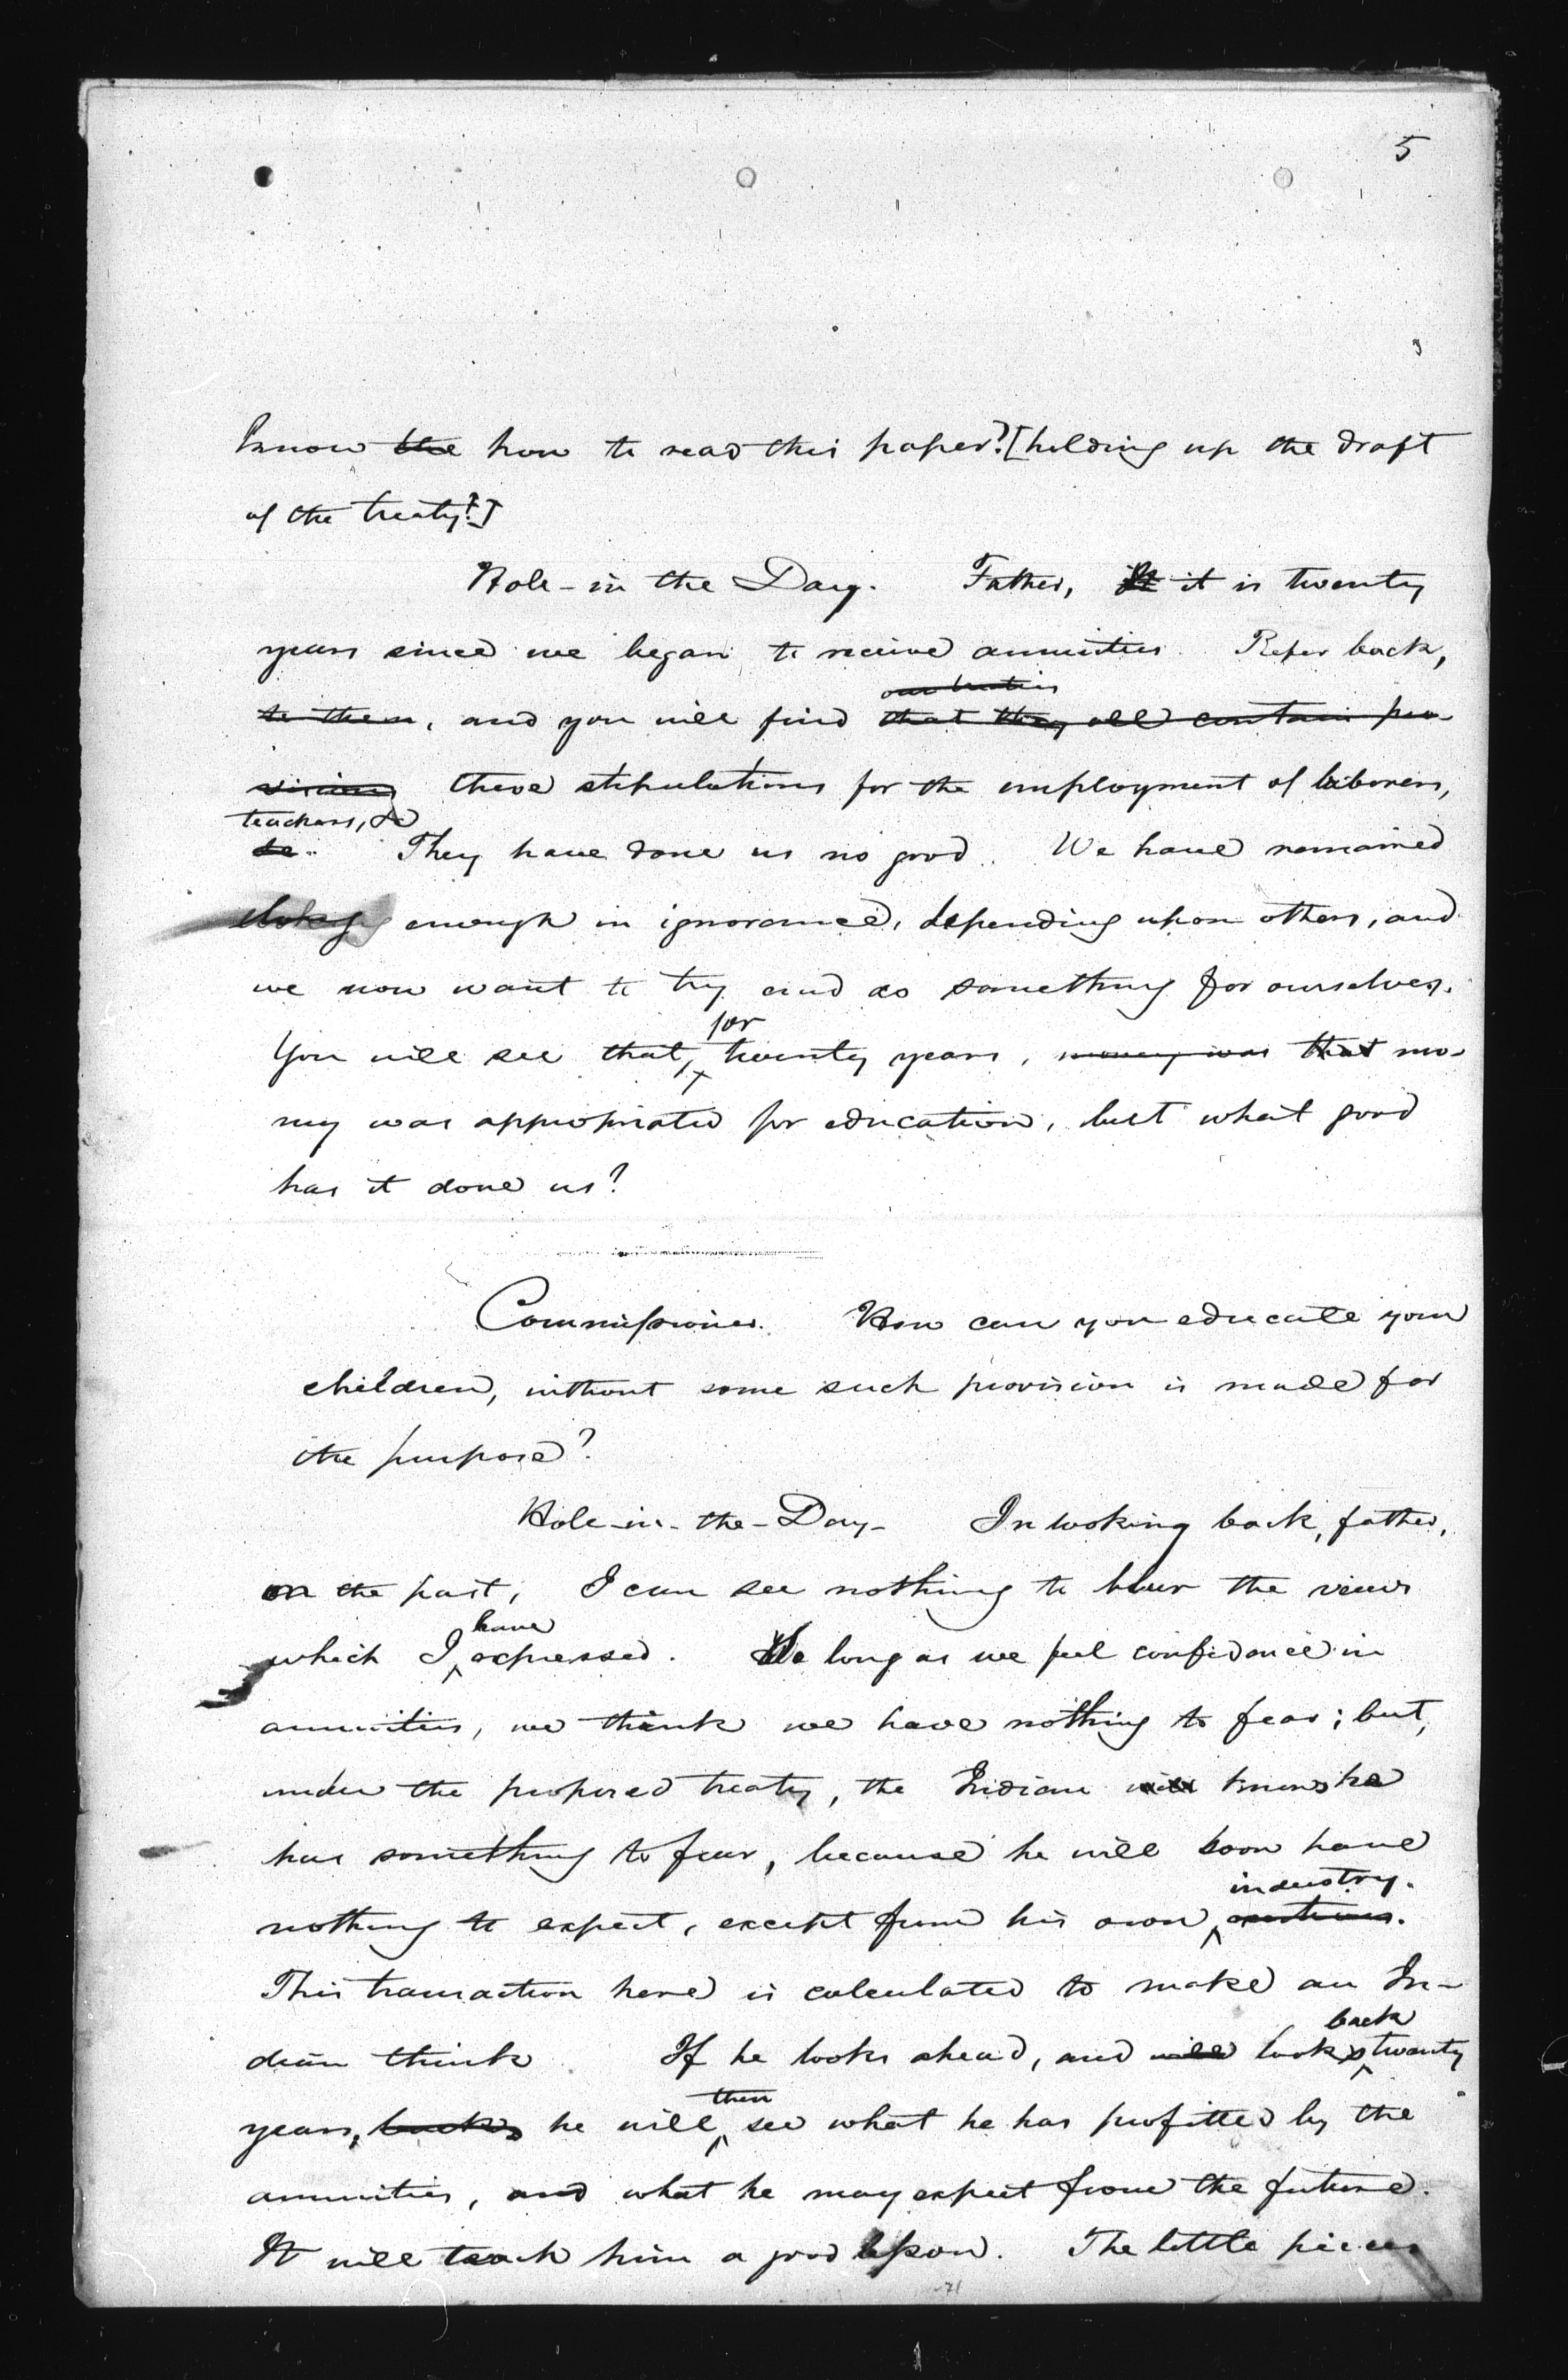 5
know the how to read this paper? [holding up the draft
of the treaty?]
Hole-in the Day. Father, It it is twenty
years since we began to receive annuities. Refer back,
our treaties
to them, and you will find that they all contain pro-
visions these stipulations for the employment of laborers,
teachers, &c
&c. They have done us no good. We have remained
enough in ignorance, depending upon others, and
we now want to try and do something for ourselves.
for
You will see that, twenty years, money was that mo-
ney was appropriated for education, but what good
has it done us?
Commissioner. How can you educate your
children, without some such provision is made for
the purpose?
Hole-in-the-Day- In looking back, father,
on the past, I can see nothing to blur the views
have
which I expressed. So long as we feel confidence in
annuities, we think we have nothing to fear; but,
under the proposed treaty, the Indian will knows he
has something to fear, because he will soon have
industry.
nothing to expect, except from his own exertions.
This transaction here is calculated to make an In-
back
dian think If he looks ahead, and will looks twenty
then
years, back, he will see what he has profitted by the
annuities, and what he may expect from the future.
It will teach him a good lesson. The little pieces
71